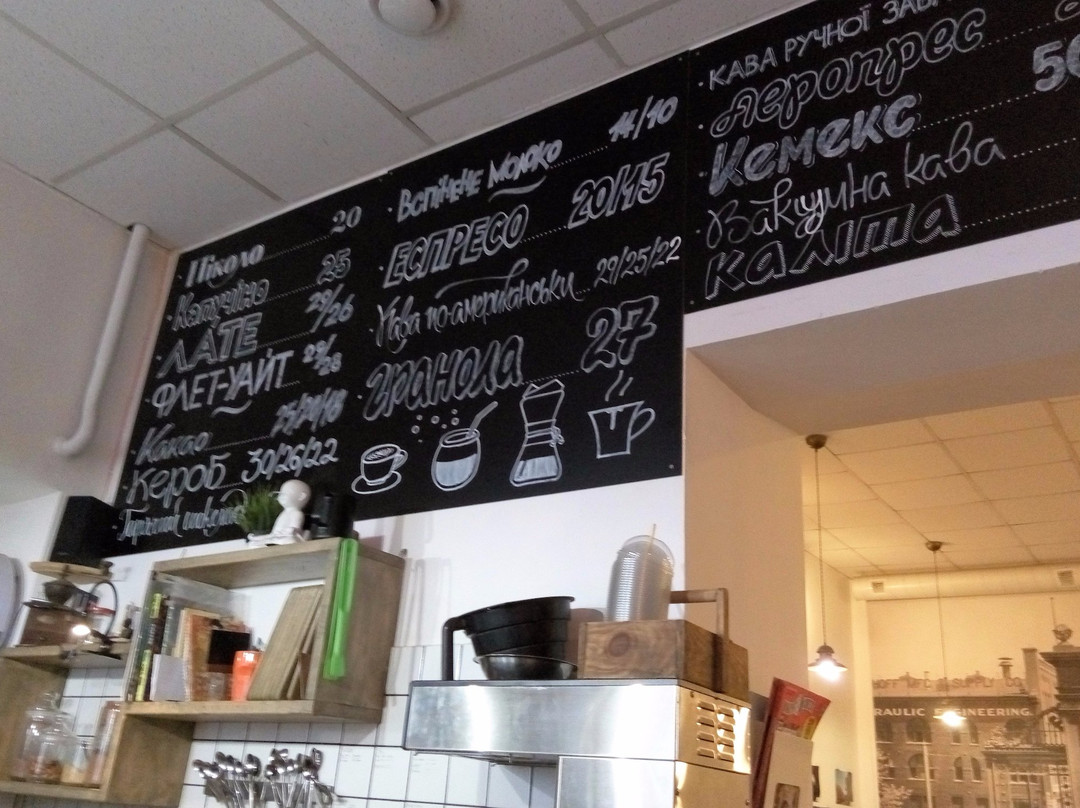 Піколо 20
Капучіно 25
ЛАТЕ 29/26
ФЛЕТ-УАЙТ
Какао
Кероб 30/26/22
Гарячий
Вспінене Молоко 14/10
ЕСПРЕСО 20/15
Кава по-американськи 29/25/22
Гранола 27
КАВА РУЧНОЇ
Аеропрес
Кемекс
Вакуумна кава
Каліта
RAULIC ENGINEERING